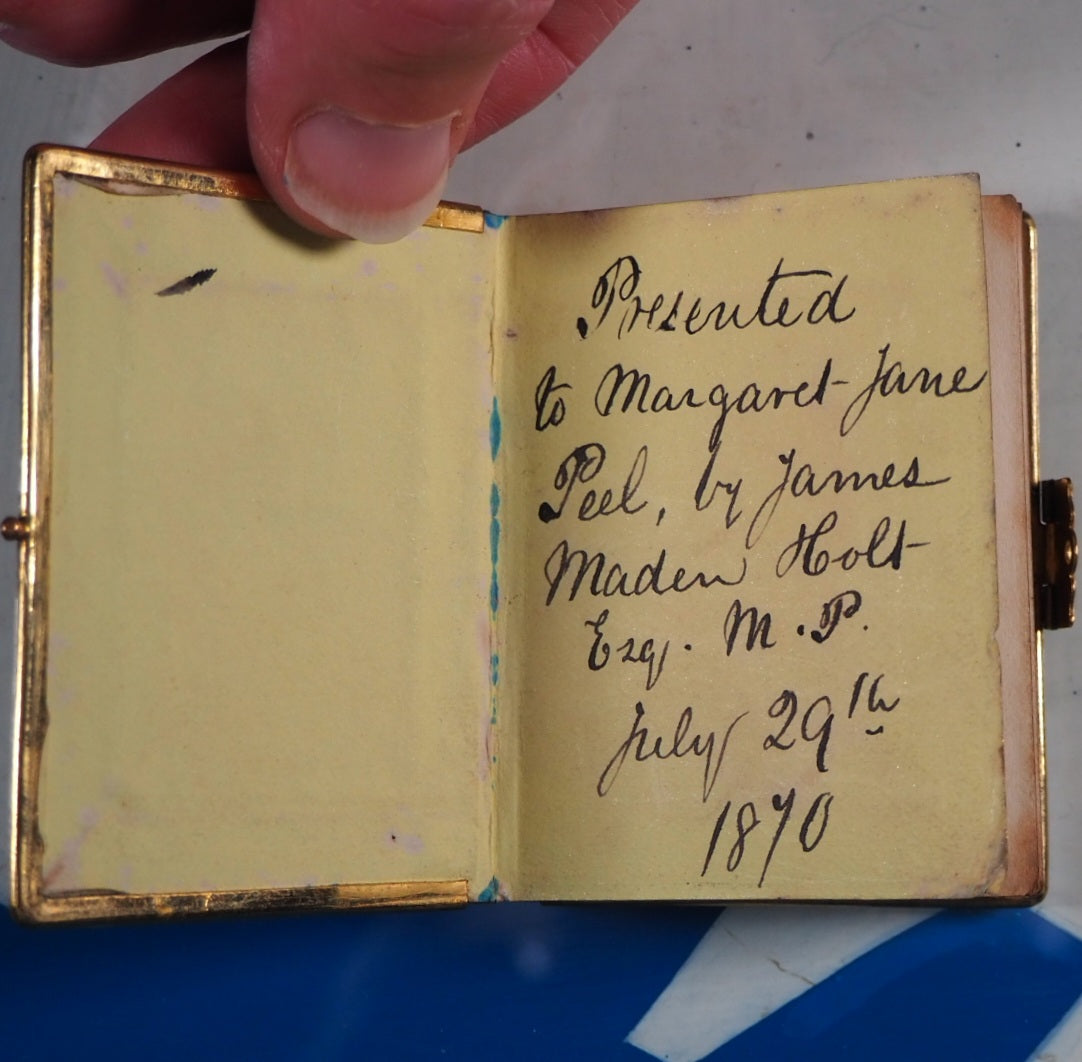 Presented
to Margaret Jane
Peel, by James
Maden Holt
Esq. M.P.
July 29th
1870